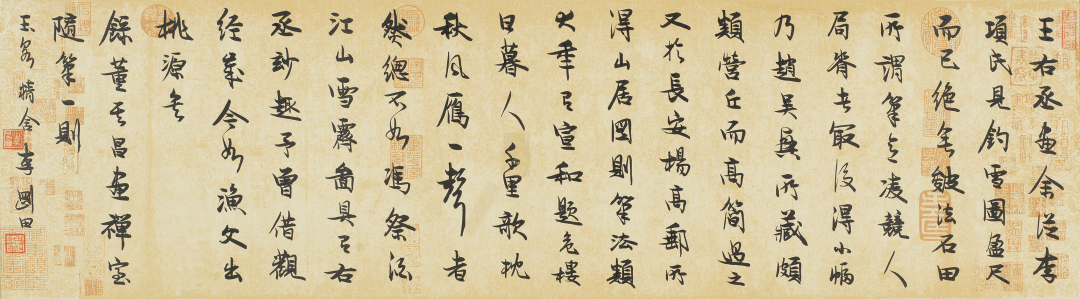 王右丞畫余從李
項氏見釣雪圖盈尺
而已絕無皴法石田
所謂筆意凌競人
局脊者最後得小幀
乃趙吳興所藏頗
類營丘而高簡過之
又於長安楊高郵所
得山居圖則筆法類
大年有宣和題危樓
日暮人千里歌枕
秋風鴈一聲者
然總不如馮祭酒
江山雪霽圖具有右
丞妙趣予曾借觀
經歲今如漁父出
桃源矣
錄董其昌畫禪室
隨筆一則
精舍李國田